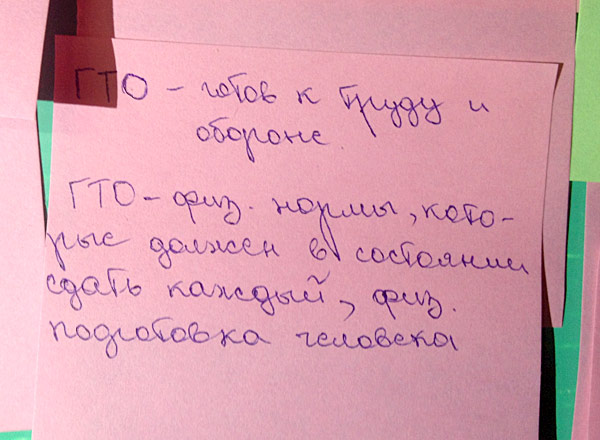 ГТО - готов к труду и
обороне.
ГТО - физ. нормы, кото-
рые должен в состоянии
сдать каждый, физ.
подготовка человека